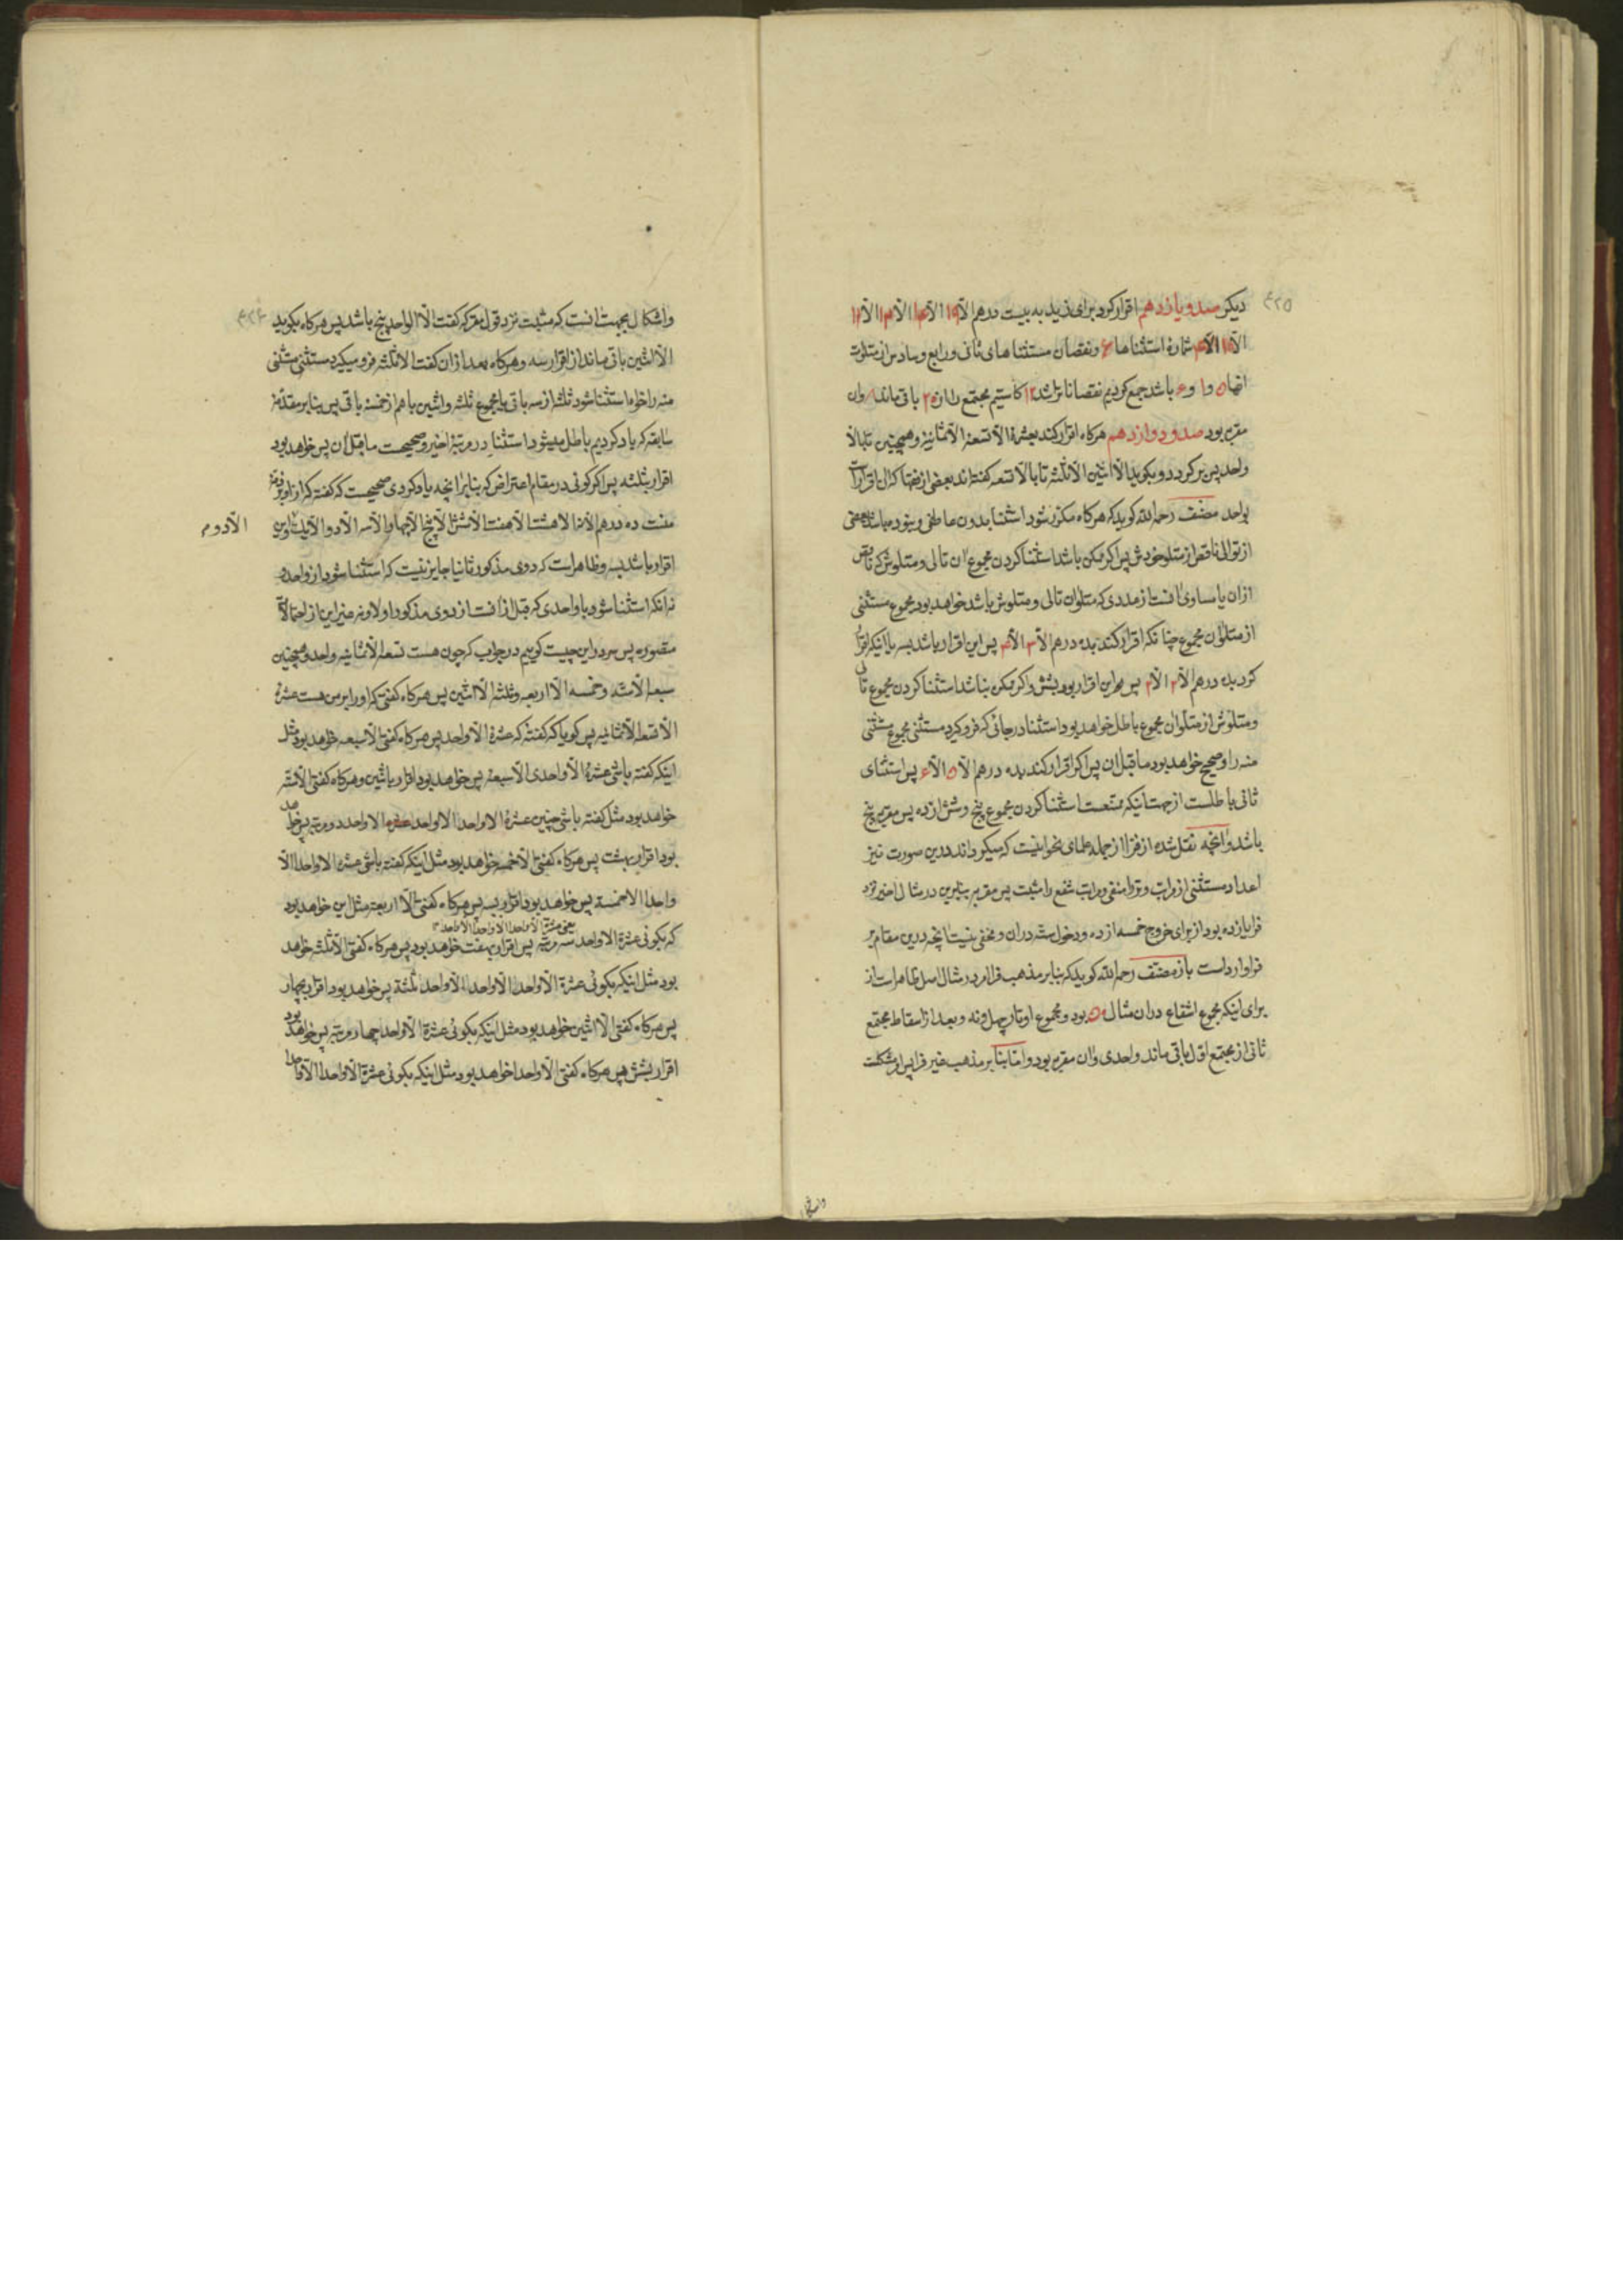 ۴۲۵
دیکر صد و یازدهم اقرار کرد برای زید به بیست درهم الا ۱۹ الا الا ۱۳ الا ۱۲
الا ۱۱ الا شماره استثناها ۶ و نقصان مستثناهای ثانی و رابع و سادس از متلوات
انها ۵ و ۱ و باشد جمع کردیم نقصانات را شد ۱۲ کاستیم مجتمع را از ۲۰ باقی ماند ۸ و ان
مقربه بود صد و دوازدهم هرکاه اقرار کند بعشرة الا تسعة الا ثمانیة و همچنین تا بالا
واحد پس برکردد و بکوید الا اثنین الا ثلثه تا بالا تسعه کفته‌اند بعضی از فقها که ان اقرار است
بواحد مصنف رحمه الله کوید که هرکاه مکرر شود استثنا بدون عاطفی و نبوده باشد بعضی
از توالی ناقص از متلو خودش پس اکر ممکن باشد استثنا کردن مجموع ان تالی و متلوش که ناقص
ازان یا مساوی انست از عددی که متلو ان تالی و متلوش باشد خواهد بود مجموع مستثنی
از متلو ان مجموع چنانکه اقرار کند بده درهم الا ۳ الا ۴ پس این اقرار باشد بسه یا اینکه اقرار
کرد بده درهم الا ۲ الا ۲ پس این اقرار بود بشش و اکر ممکن نباشد استثنا کردن مجموع تالی
و متلوش از متلو ان مجموع باطل خواهد بود استثنا در جائی که فرو کیرد مستثنی مجموع مستثنی
منه را و صحیح خواهد بود ما قبل ان پس اکر اقرار کند بده درهم الا ۵ الا ۶ پس استثنای
ثانی باطلست از جهت اینکه ممتنعست استثنا کردن مجموع پنج و شش از ده پس مقربه پنج
باشد و انچه نقل شده از فرا از جمله علمای نحو اینست که میکرداند درین صورت نیز
اعداد مستثنی از مراتب وتر را منفی و مراتب شفع را مثبت پس مقربه بنابرین در مثال اخیر نزد
فرا یازده بود از برای خروج خمسه از ده و دخول سته دران و مخفی نیست انچه درین مقام بر
فرا وارداست باز مصنف رحمه الله کوید که بنابر مذهب فرا امر در مثال اصل ظاهر است از
برای اینکه مجموع اشفاع دران مثال ۵۰ بود و مجموع اوتار چهل و نه و بعد از اسقاط مجتمع
ثانی از مجتمع اول باقی ماند واحدی و ان مقربه بود و اما بنابر مذهب غیر فرا پس امر مشکلست
۴۲۶
و اشکال بجهت انست که مثبت نزد قول مقر که کفت الا الواحد پنج باشد پس هرکاه بکوید
الا اثنین باقی ماند از اقرار سه و هرکاه بعد از ان کفت الا ثلثه فرو میکیرد مستثنی مستثنی
منه را خواه استثنا شود ثلثه از سه باقی یا مجموع ثلثه و اثنین باهم از خمسه باقی پس بنابر مقدمه
سابقه که یاد کردیم باطل میشود استثنا در مرتبه اخیر و صحیحست ما قبل ان پس خواهد بود
اقرار بثلثه پس اکر کوئی در مقام اعتراض که بنابر انچه یاد کردی صحیحست که کفته که از او بر ذمه
منت ده درهم الا نه الا هشت الا هفت الا شش الا پنج الا چهار الا سه الا دو الا یک و این
الا دو م
اقرار باشد بسه و ظاهر است که دوی مذکور ثانیا جایز نیست که استثنا شود از واحد و
نه انکه استثنا شود با واحدی که قبل از انست از دوی مذکور اولا و نه غیر این از احتمالات
متصوره پس سر در این چیست کوییم در جواب که چون هست تسعة الا ثمانیه واحد و همچنین
سبعه الا سته و خمسه الا اربعه و ثلثه الا اثنین پس هرکاه کفتی که او را بر من هست عشرة
الا تسعة الا ثمانیه پس کویا که کفته که عشرة الا واحد پس هرکاه کفتی الا سبعه خواهد بود مثل
اینکه کفته باشی عشرة الا واحدی الا سبعة پس خواهد بود اقرار باثنین و هرکاه کفتی الا سته
خواهد بود مثل کفته باشی چنین عشرة الا واحدا الا واحدا الا واحد دو مرتبه پس خواهد
بود اقرار بهشت پس هرکاه کفتی الا خمسه خواهد بود مثل اینکه کفته باشی عشره الا واحدا الا
واحدا الا خمسة پس خواهد بود اقرار بسه پس هرکاه کفتی الا اربعة مثل این خواهد بود
یعنی عشرة الا واحدا الا واحدا الا واحد ۳
که بکوئی عشرة الا واحد سه مرتبه پس اقرار بهفت خواهد بود پس هرکاه کفتی الا ثلثه خواهد
بود مثل اینکه بکوئی عشرة الا واحدا الا واحدا الا واحدا ثلثة پس خواهد بود اقرار بچهار
پس هرکاه کفتی الا اثنین خواهد بود مثل اینکه بکوئی عشرة الا واحد چهار مرتبه پس خواهد بود
اقرار بشش پس هرکاه کفتی الا واحدا خواهد بود مثل اینکه بکوئی عشرة الا واحدا الا واحدا